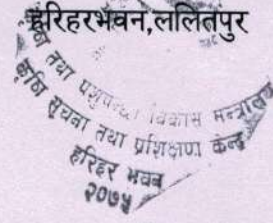 हरिहरभवन,ललितपुर
कृषि तथा पशुपन्छी विकास मन्त्रालय
कृषि सूचना तथा प्रशिक्षण केन्द्र
हरिहर भवन
२०७५